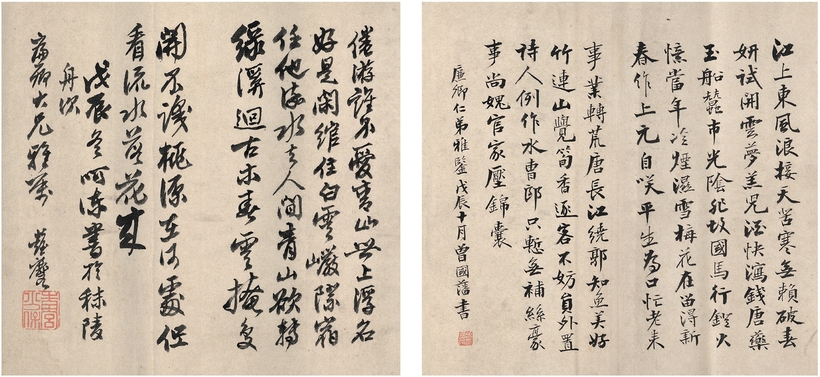 江上東風浪接天苦寒無賴破春
妍試開雲夢羔兒酒快瀉錢唐藥
玉船蠶市光陰非故國馬行鐙火
憶當年冷煙濕雪梅花在留得新
春作上元自咲平生為口忙老來
事業轉荒唐長江繞郭知魚美好
竹連山覺筍香逐客不妨員外置
詩人例作水曹郎只慙無補絲豪
事尚媿官家壓錦囊
廉卿仁弟雅鑒戊辰十月曾國藩書
倦游誰不愛青山世上浮名
好是閑住白雲巖際宿
任他流水去人間青山欲轉
綠溪迴古木春雲掩复
開不識桃源在何處但
看流水落花來
戊辰冬呵凍書於秣陵
舟次
廉卿大兄雅屬